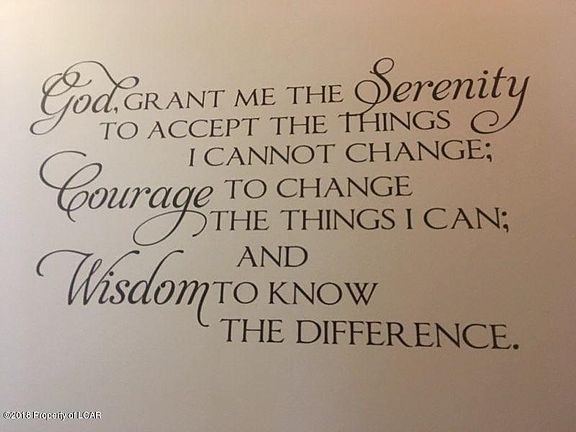 God, GRANT ME THE Serenity
TO ACCEPT THE THINGS
I CANNOT CHANGE;
Courage TO CHANGE
THE THINGS I CAN;
AND
Wisdom TO KNOW
THE DIFFERENCE.
©2018 Property of LCAR